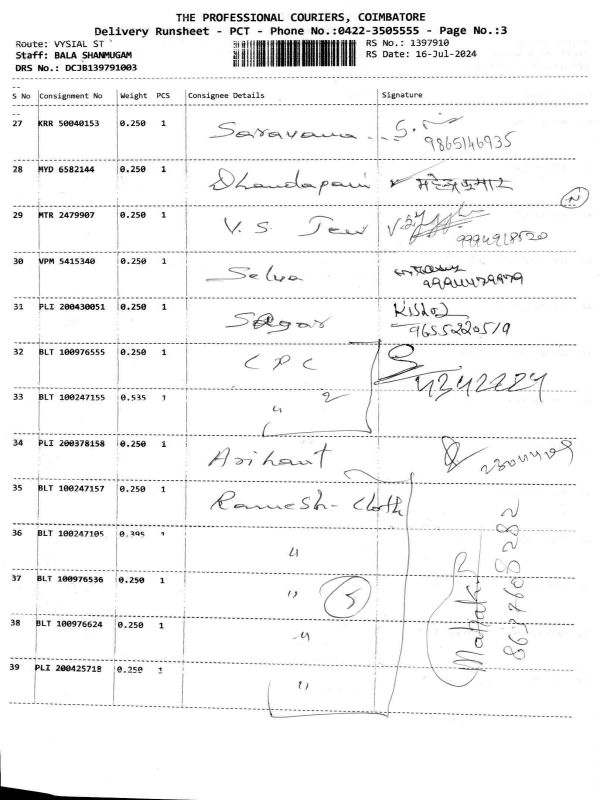 THE PROFESSIONAL COURIERS, COIMBATORE
Delivery Runsheet - PCT - Phone No.:0422-3505555 - Page No.:3
Route: VYSIAL ST `
RS No.: 1397910
Staff: BALA SHANMUGAM
RS Date: 16-Jul-2024
DRS No.: DCJB139791003
S No Consignment No Weight PCS Consignee Details Signature
27 KRR 50040153 0.250 1 Saravana
9865146935
28 MYD 6582144 0.250 1 Dhandapani महेन्द्र कुमार
N
29 MTR 2479907 0.250 1 V. S. Jew
9994918520
30 VPM 5415340 0.250 1 Selva
31 PLI 200430051 0.250 1 Sagar
9655220519
32 BLT 100976555 0.250 1 CPC
4342224
33 BLT 100247155 0.535 1 " 2
34 PLI 200378158 0.250 1 Arihant
35 BLT 100247157 0.250 1 Ramesh- Cloth
36 BLT 100247105 0.395 1 "
37 BLT 100976536 0.250 1 " 5
38 BLT 100976624 0.250 1 "
39 PLI 200425718 0.250 1 "
8637608282